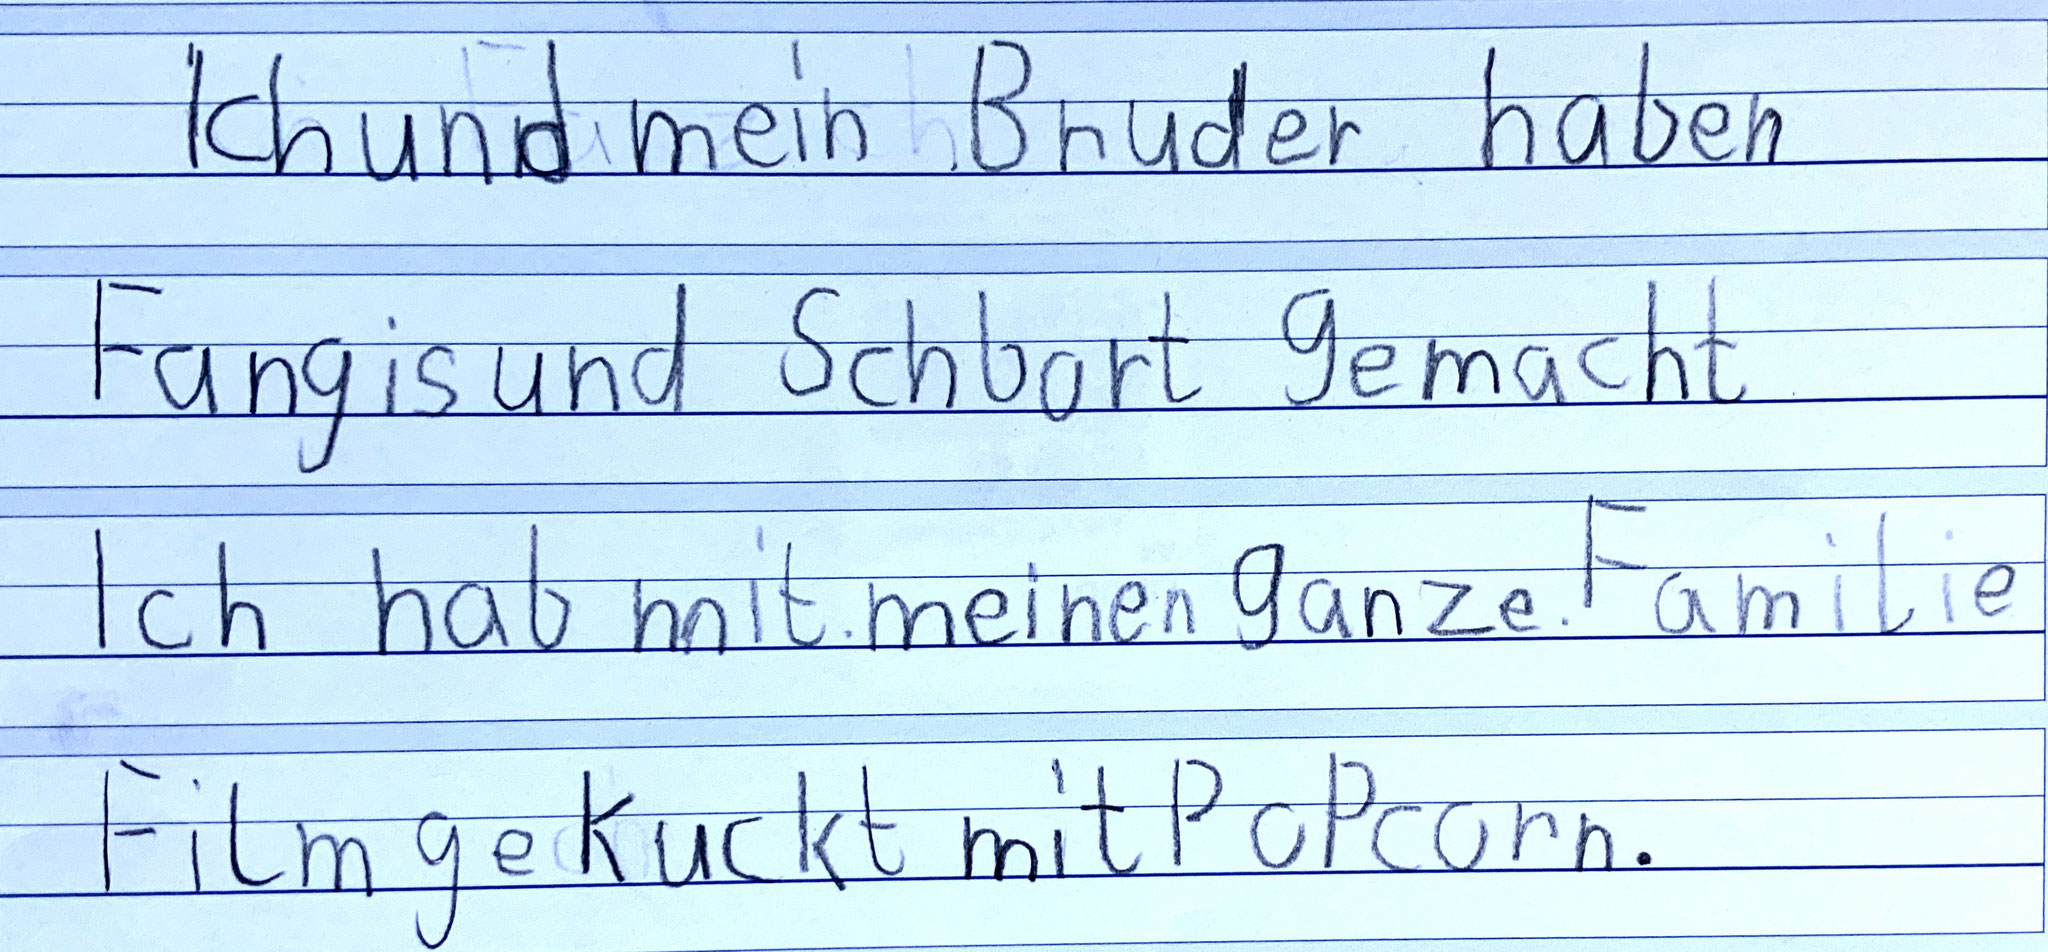 Ich und mein Bruder haben
Fangis und Schbort gemacht
Ich hab mit meinen ganze Familie
Film gekuckt mit PoPcorn.